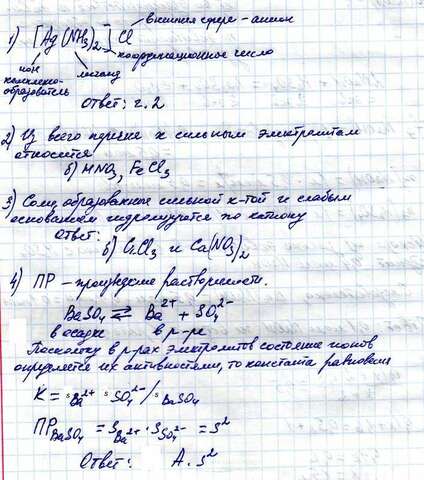 внешняя сфера - анион
1) [Ag(NH3)2]Cl
координационное число
ион комплексо-образователь
лиганд
Ответ: г. 2
2) Из всего перечня к сильным электролитам
относится
б) HNO3, FeCl3
3) Соли, образованные сильной к-той и слабым
основанием гидролизуются по катиону
Ответ:
б) CrCl3 и Ca(NO3)2
4) ПР – произведение растворимости.
BaSO4 ⇄ Ba2+ + SO4 2-
в осадке в р-ре
Поскольку в р-рах электролитов состояние ионов
определяется их активностями, то константа равновесия
K = sBa2+ sSO4 2- / sBaSO4
ПР BaSO4 = SBa2+ · SSO4 2- = S2
Ответ: А. S2